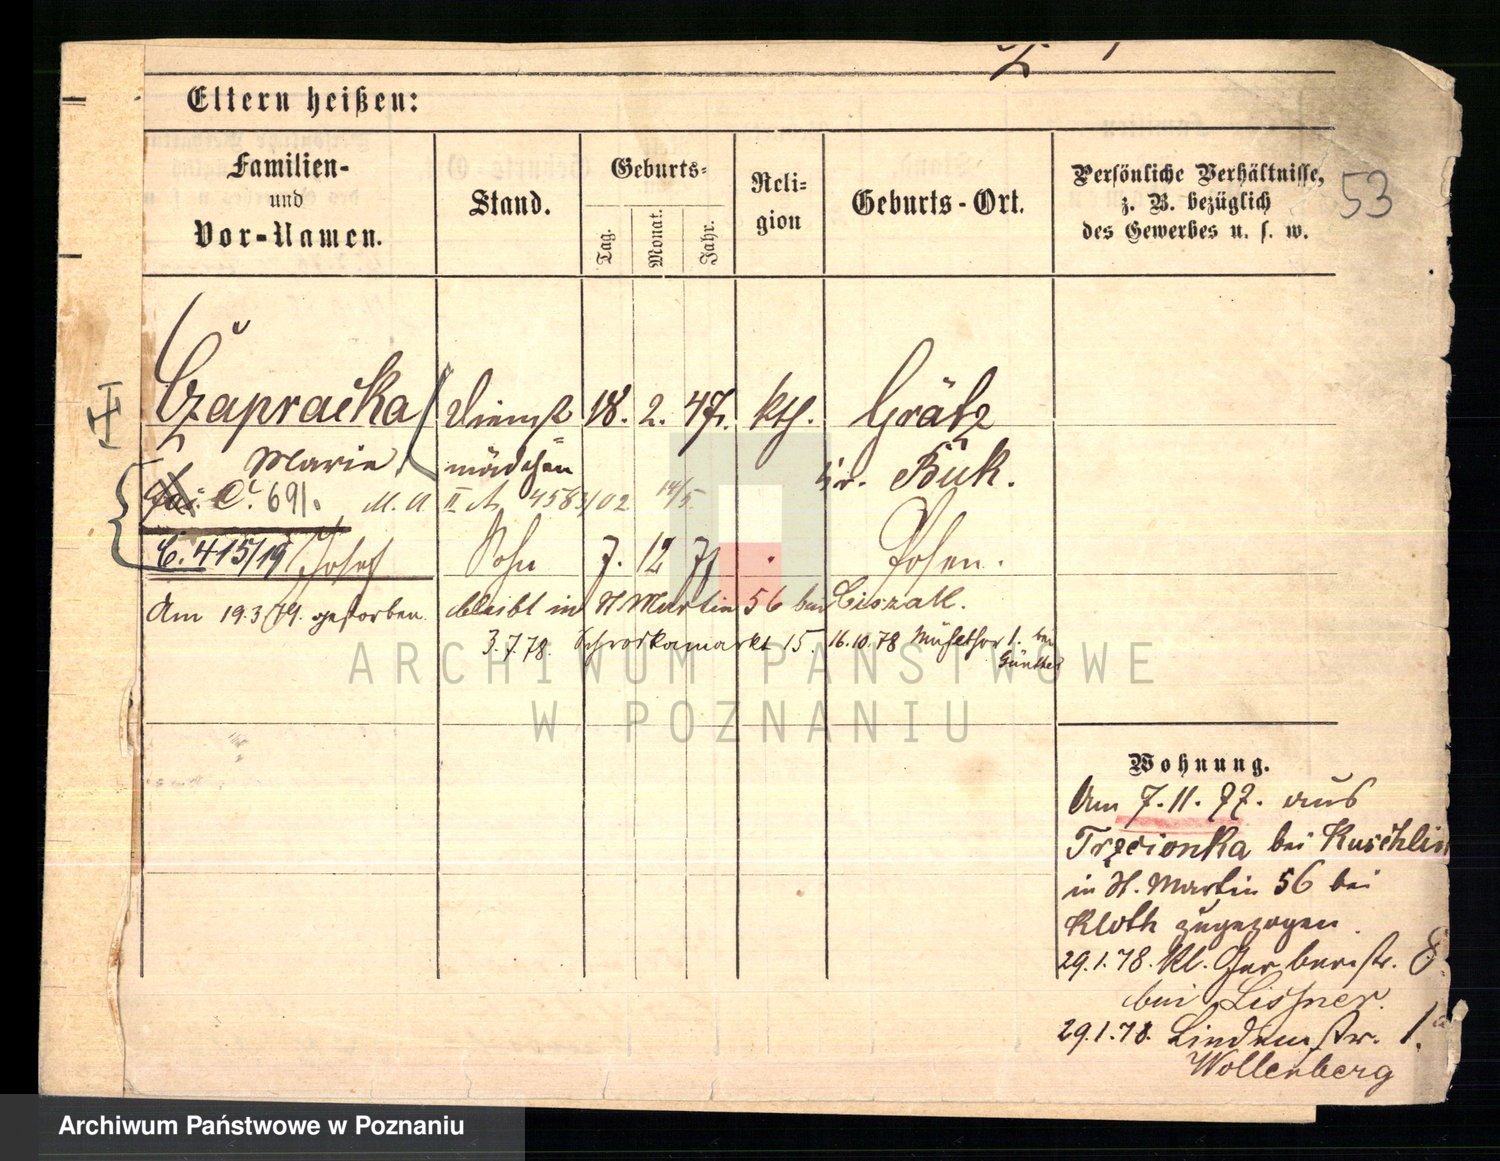 Eltern heißen:
Familien-
und
Vor-Namen.
Stand.
Geburts-
Tag.
Monat.
Jahr.
Reli-
gion
Geburts-Ort.
Persönliche Verhältnisse,
z. B. bezüglich
des Gewerbes u. s. w.
53
Czapračka
Dienst
18. 2. 47. kth. Grätz
Marie
mädchen
Kr. Buk.
C. 691. M. A. II A 4583/02 14/5
C. 415/19 Josef Sohn 7. 12 Posen.
Am 19.3.79. gestorben. bleibt in St Martin 56 bei Ciszak.
3.7.78. Schrodkamarkt 15. 16.10.78 Mühlthor 1. bei
Günther
Wohnung.
Am 7.11.77. aus
Trzcionka bei Kuschlin
in St. Martin 56 bei
Kloth zugezogen.
29.1.78. Kl. Gerberstr. 8.
bei Lissner.
29.1.78. Lindenstr. 1.
Wollenberg
ARCHIWUM PAŃSTWOWE
W POZNANIU
Archiwum Państwowe w Poznaniu